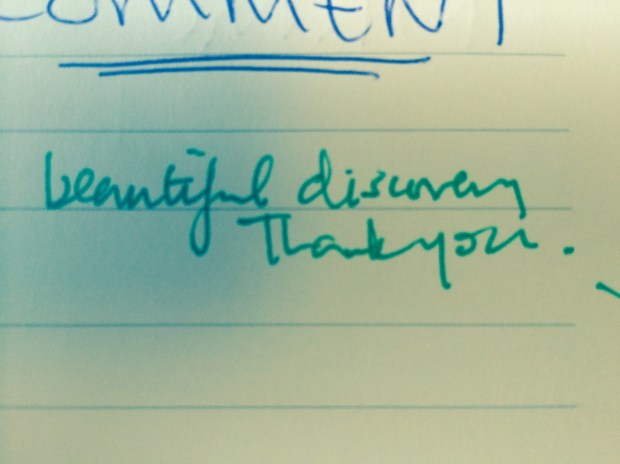 COMMENT
beautiful discovery
Thankyou.